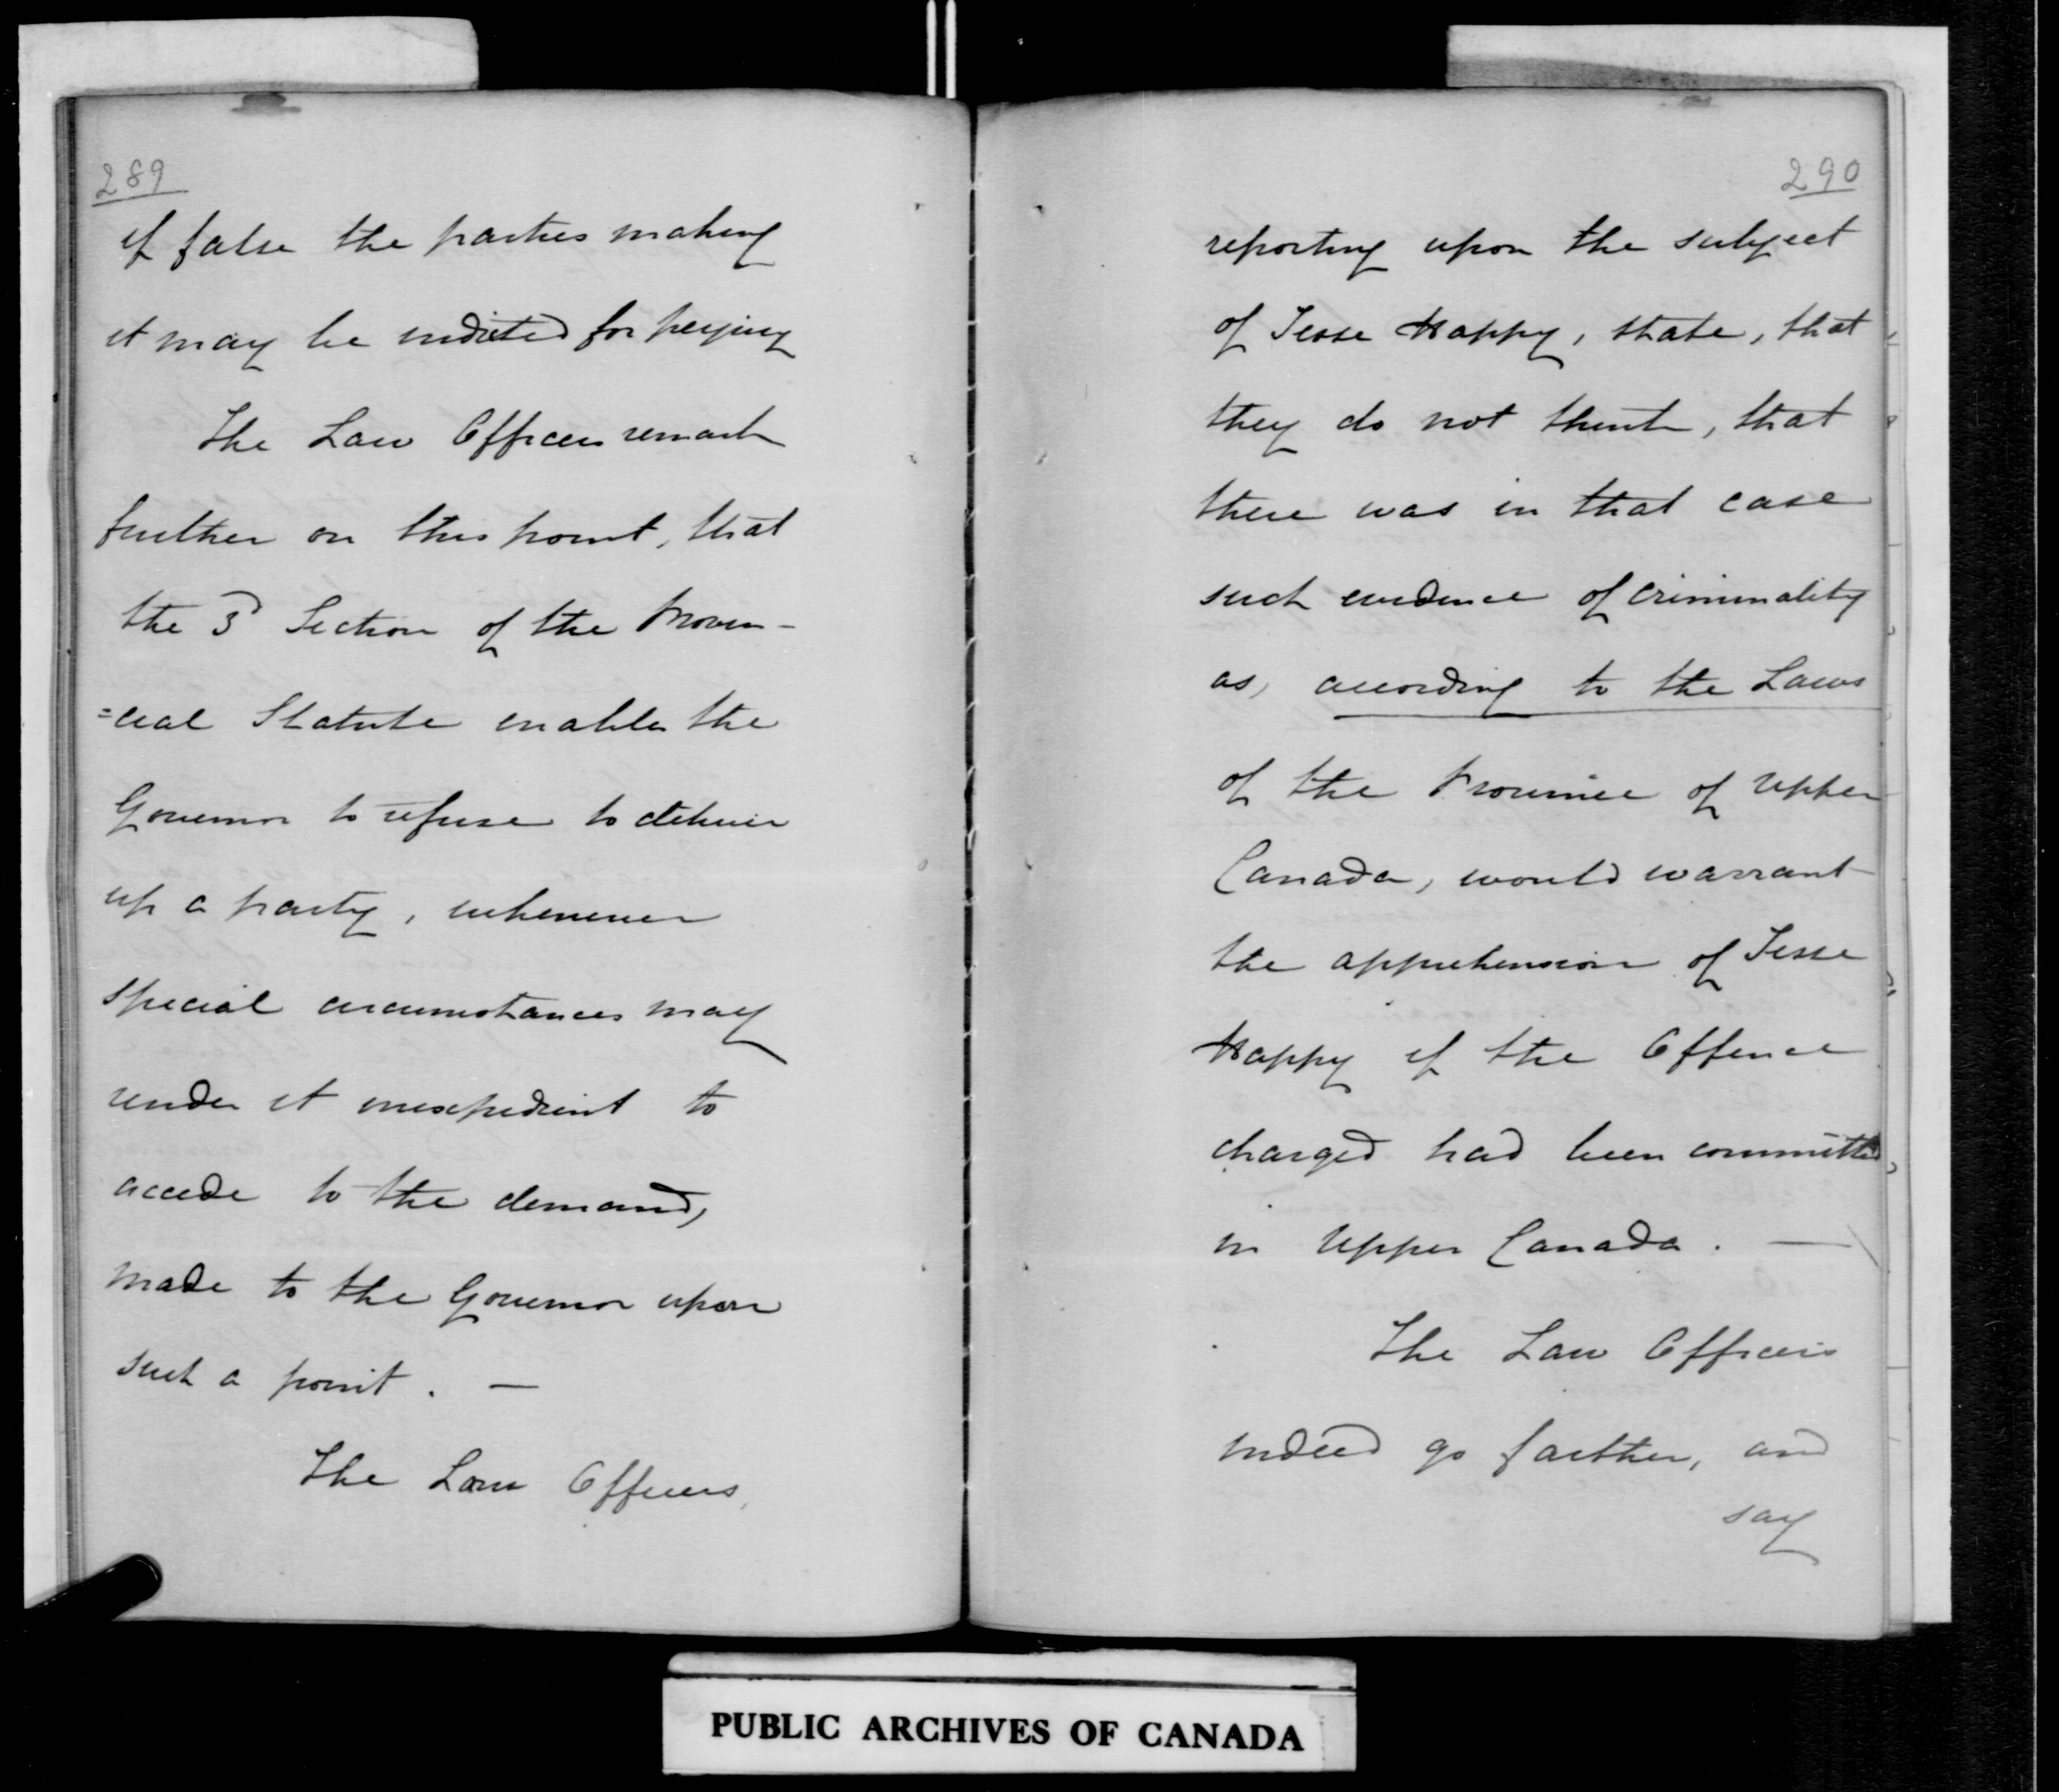 289
if false the parties making
it may be indicted for perjury
The Law Officers remark
further on this point, that
the 3d Section of the Provin-
=cial Statute enables the
Governor to refuse to deliver
up a party, whenever
special circumstances may
render it inexpedient to
accede to the demand,
made to the Governor upon
such a point. —
The Law Officers,
290
reporting upon the subject
of Jesse Happy, state, that
they do not think, that
there was in that case
such evidence of criminality
as, according to the Laws
of the Province of Upper
Canada, would warrant
the apprehension of Jesse
Happy if the Offence
charged had been committed
in Upper Canada. —
The Law Officers
indeed go farther, and
say
PUBLIC ARCHIVES OF CANADA